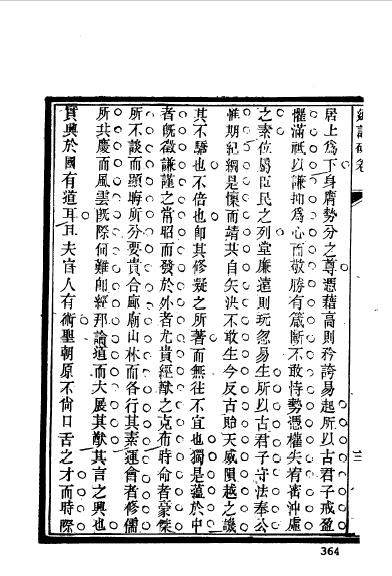 居上爲下身膺勢分之尊憑藉高則矜誇易起所以古君子戒盈
懼滿祇以謙抑爲心而敬勝有箴斷不敢恃勢憑權失宥密沖虛
之素位爲臣民之列堂廉遠則玩忽易生所以古君子守法奉公
惟期紀綱是懍而靖共自矢決不敢生今反古貽天威隕越之譏
其不驕也不倍也卽其修凝之所著而無往不宜也獨是蘊於中
者旣徵謙謹之常昭而發於外者尤貴經猷之克布時命者豪傑
所不談而顯晦所分要貴合廊廟山林而各行其素運會者修儒
所共慶而風雲旣際何難卽經邦論道而大展其猷其言之興也
實興於國有道耳且夫官人有術聖朝原不尚口舌之才而時際
364